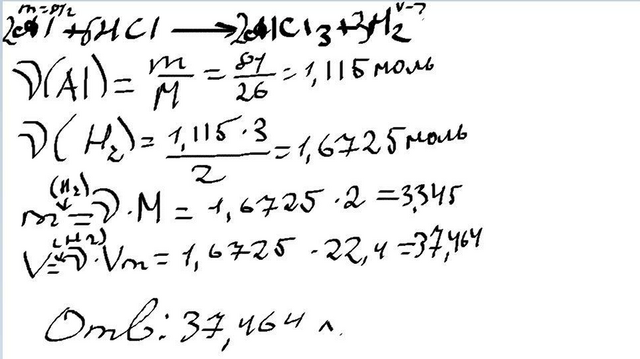 m=81г V-?
2Al+6HCl → 2AlCl3+3H2
ν(Al)= m/M = 81/26 = 1,115 моль
ν(H2)= 1,115·3/2 = 1,6725 моль
(H2)
m = ν·M = 1,6725·2 = 3,345
(H2)
V = ν·Vm = 1,6725·22,4 = 37,464
Отв: 37,464 л.